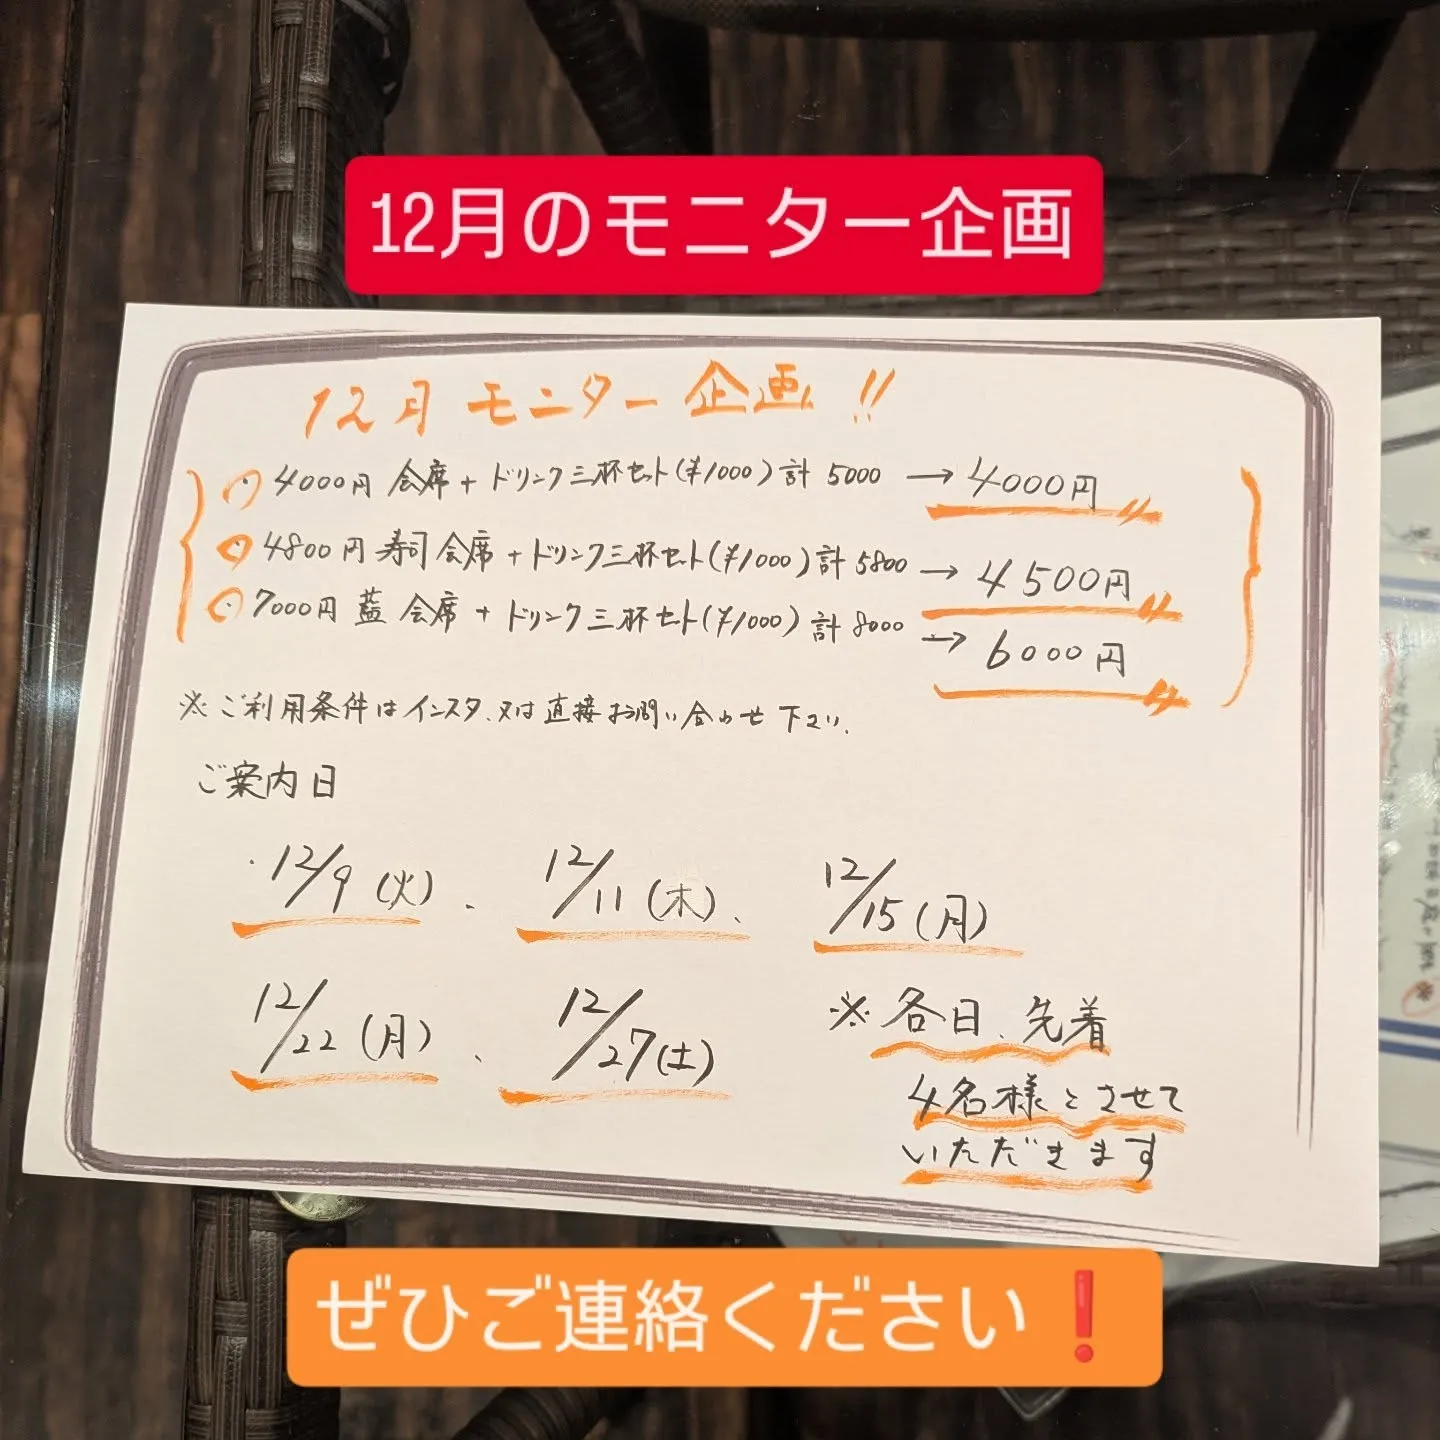 12月のモニター企画
12月 モニター 企画!!
4000円 会席 + ドリンク三杯セット(¥1000) 計 5000 → 4000円
4800円 寿司会席 + ドリンク三杯セット(¥1000) 計 5800 → 4500円
7000円 藍 会席 + ドリンク三杯セット(¥1000) 計 8000 → 6000円
※ご利用条件はインスタ、又は直接お問い合わせ下さい。
ご案内日
・12/9(火)、 12/11(木)、 12/15(月)
12/22(月)、 12/27(土)
※各日、先着
4名様とさせて
いただきます
ぜひご連絡ください❗